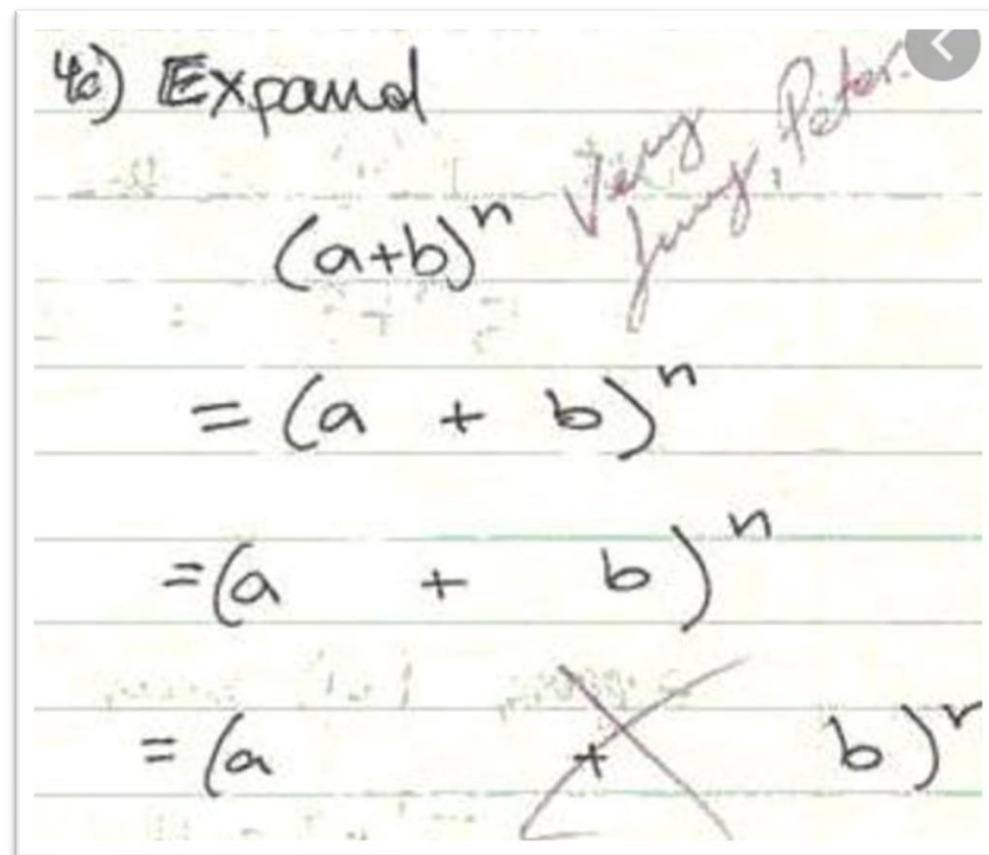 4c) Expand
Very funny, Peter.
(a+b)^n
= (a + b)^n
= (a + b)^n
= (a + b)^n